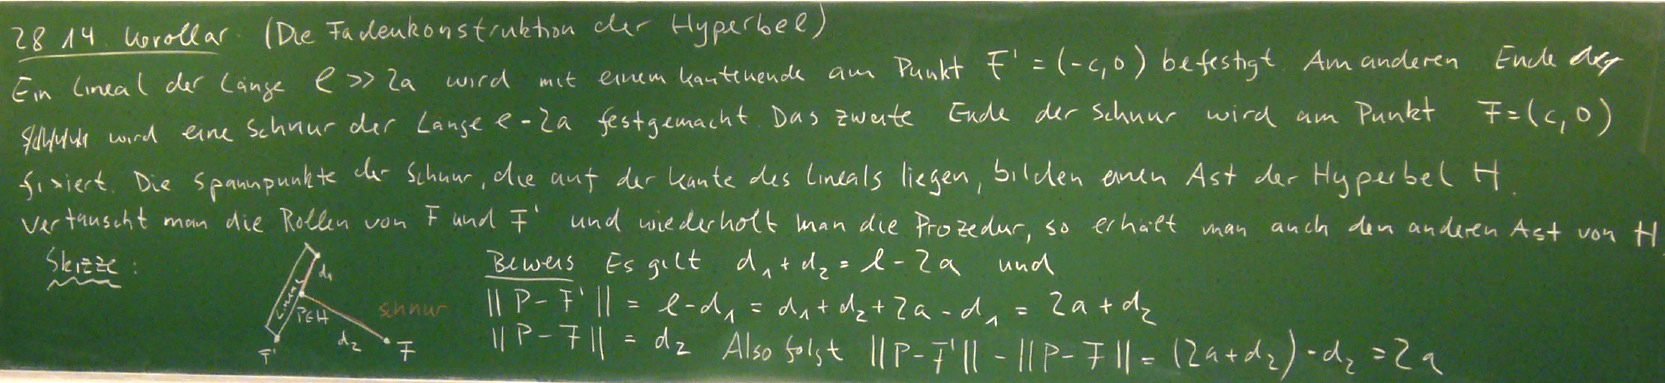 28.14 Korollar. (Die Fadenkonstruktion der Hyperbel)
Ein Lineal der Länge ℓ ≫ 2a wird mit einem Kantenende am Punkt F' = (-c, 0) befestigt. Am anderen Ende
wird eine Schnur der Länge ℓ - 2a festgemacht. Das zweite Ende der Schnur wird am Punkt F = (c, 0)
fixiert. Die Spannpunkte der Schnur, die auf der Kante des Lineals liegen, bilden einen Ast der Hyperbel H.
Vertauscht man die Rollen von F und F' und wiederholt man die Prozedur, so erhält man auch den anderen Ast von H
Skizze:
d₁
Lineal
P∈H
Schnur
d₂
F'
F
Beweis Es gilt d₁ + d₂ = ℓ - 2a und
||P - F'|| = ℓ - d₁ = d₁ + d₂ + 2a - d₁ = 2a + d₂
||P - F|| = d₂ Also folgt ||P - F'|| - ||P - F|| = (2a + d₂) - d₂ = 2a